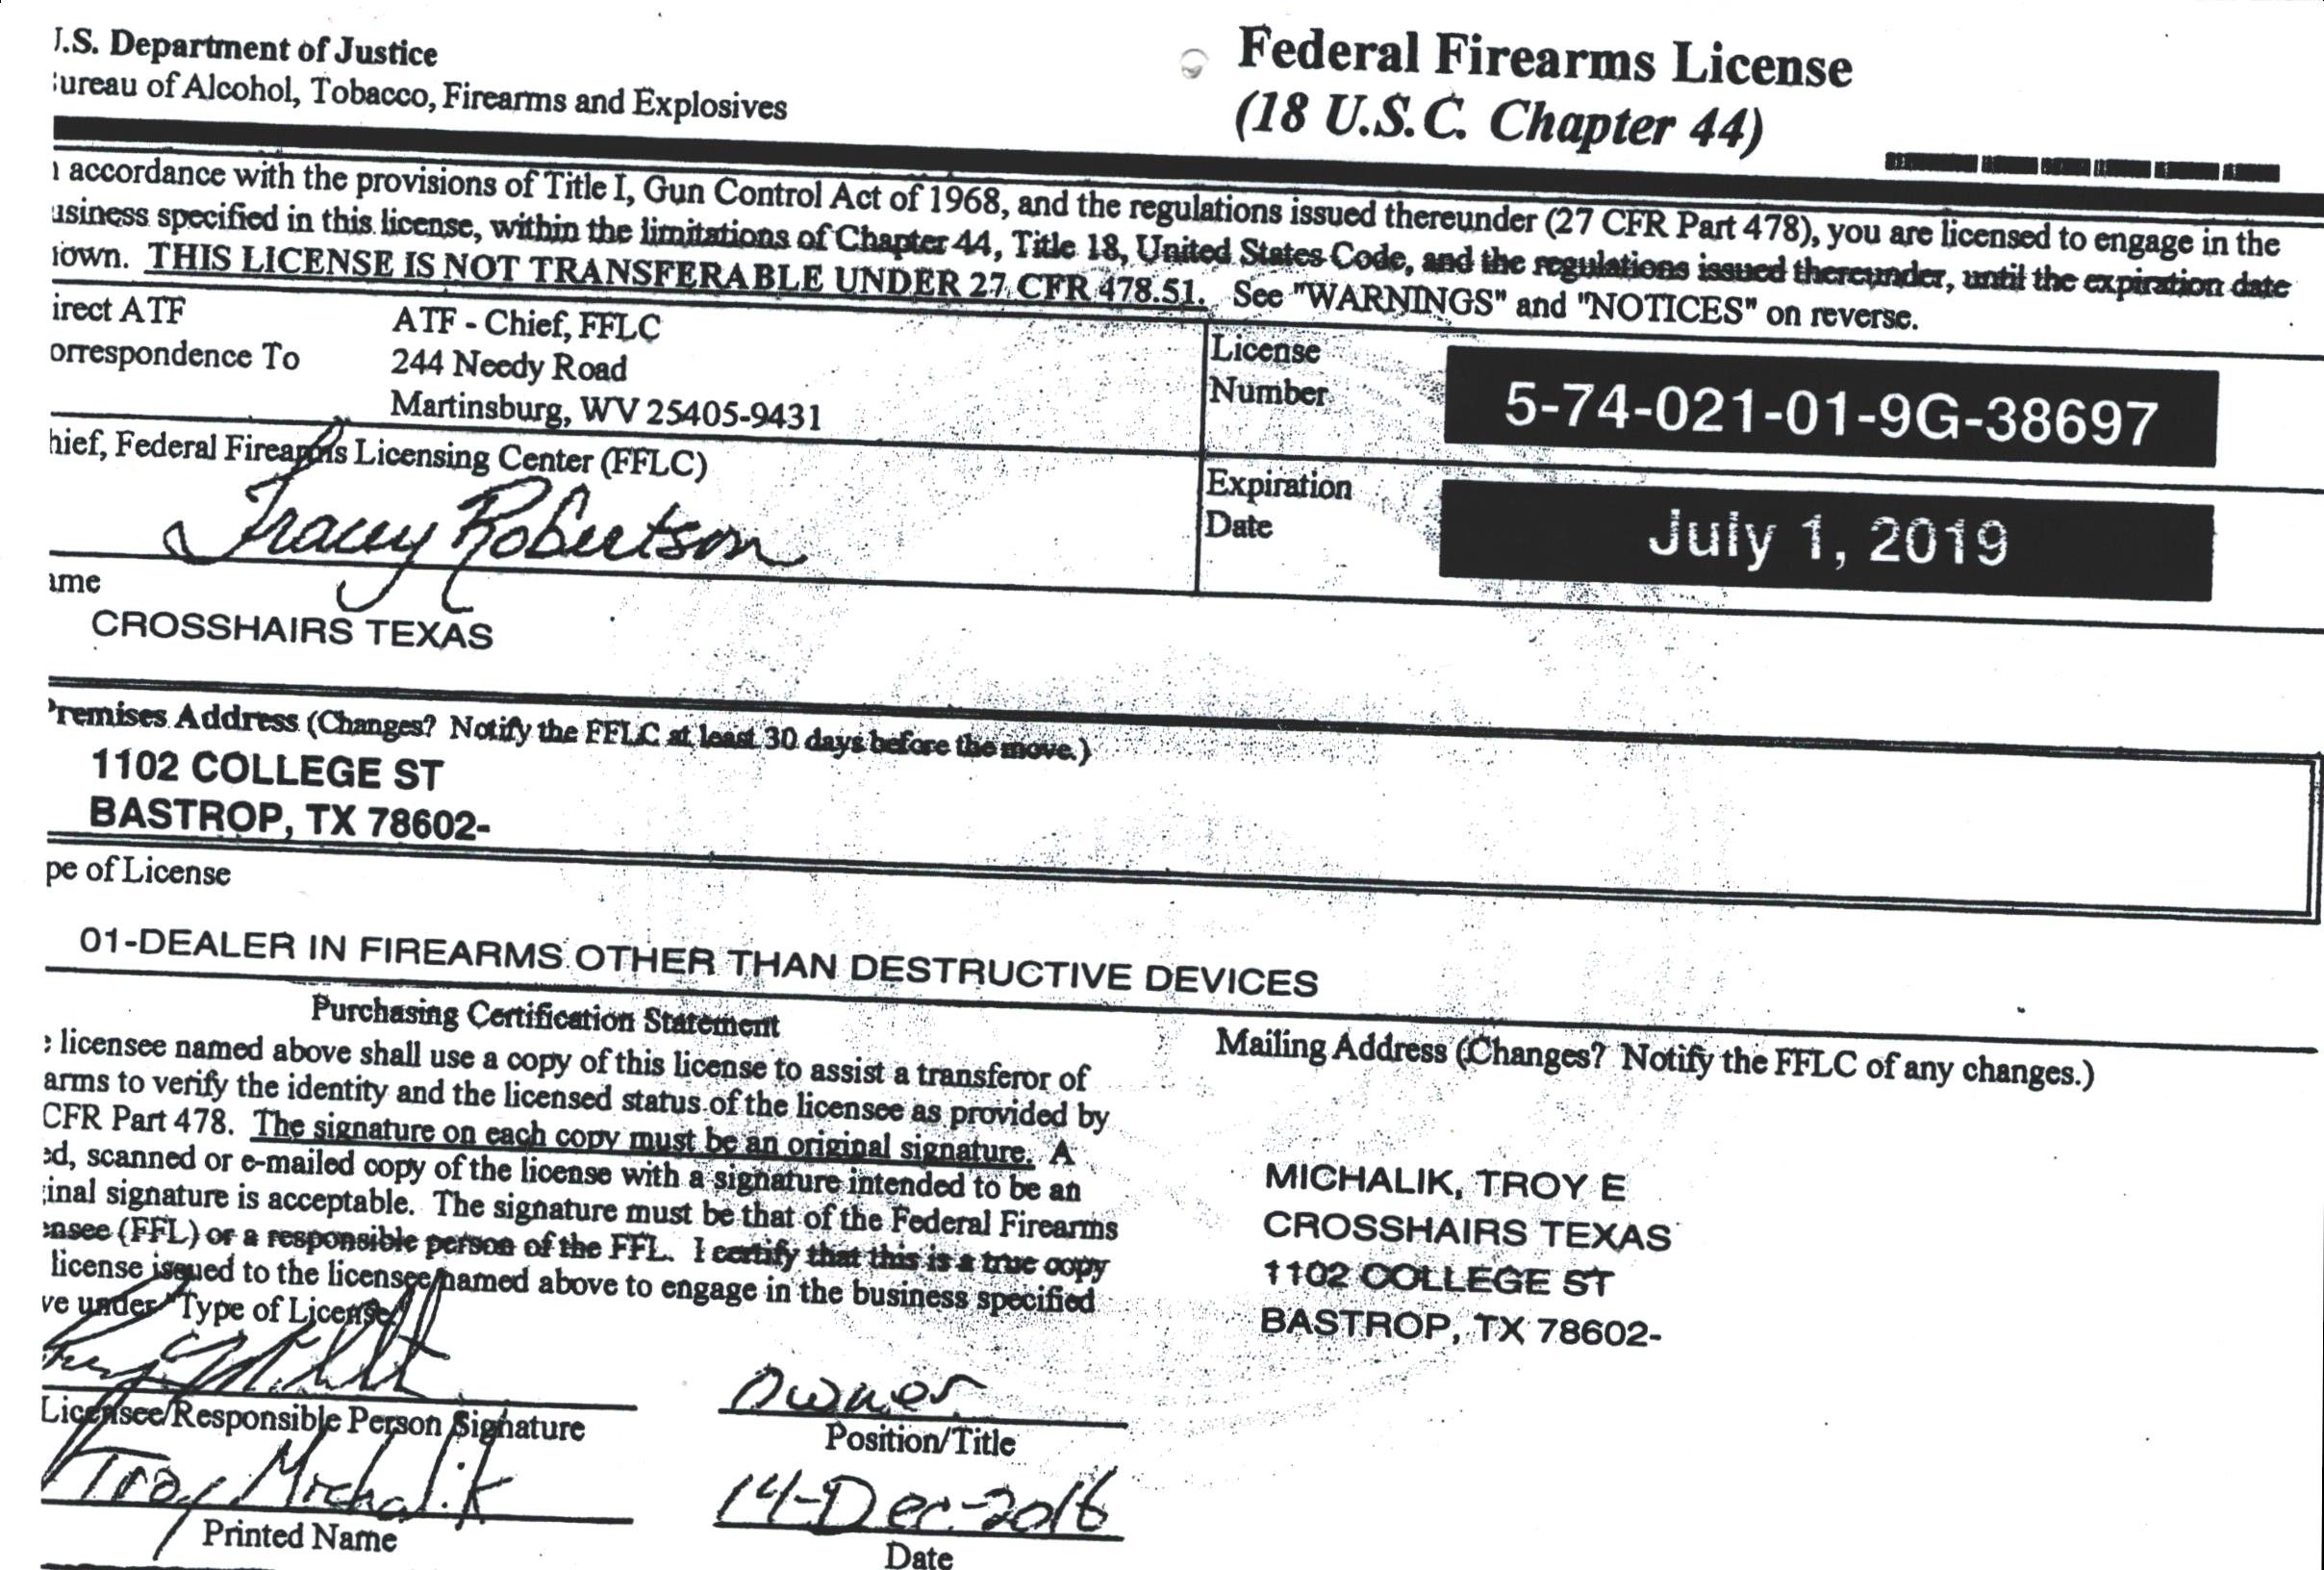 J.S. Department of Justice
ureau of Alcohol, Tobacco, Firearms and Explosives
Federal Firearms License
(18 U.S.C. Chapter 44)
accordance with the provisions of Title I, Gun Control Act of 1968, and the regulations issued thereunder (27 CFR Part 478), you are licensed to engage in the
usiness specified in this license, within the limitations of Chapter 44, Title 18, United States Code, and the regulations issued thereunder, until the expiration date
iown. THIS LICENSE IS NOT TRANSFERABLE UNDER 27 CFR 478.51. See "WARNINGS" and "NOTICES" on reverse.
irect ATF
orrespondence To
ATF - Chief, FFLC
244 Needy Road
Martinsburg, WV 25405-9431
License
Number
5-74-021-01-9G-38697
hief, Federal Firearms Licensing Center (FFLC)
Tracey Robertson
Expiration
Date
July 1, 2019
ame
CROSSHAIRS TEXAS
Premises Address (Changes? Notify the FFLC at least 30 days before the move.)
1102 COLLEGE ST
BASTROP, TX 78602-
pe of License
01-DEALER IN FIREARMS OTHER THAN DESTRUCTIVE DEVICES
Purchasing Certification Statement
licensee named above shall use a copy of this license to assist a transferor of
arms to verify the identity and the licensed status of the licensee as provided by
CFR Part 478. The signature on each copy must be an original signature. A
ed, scanned or e-mailed copy of the license with a signature intended to be an
inal signature is acceptable. The signature must be that of the Federal Firearms
ensee (FFL) or a responsible person of the FFL. I certify that this is a true copy
license issued to the licensee named above to engage in the business specified
ve under "Type of License"
Licensee/Responsible Person Signature
Owner
Position/Title
Troy Michalik
Printed Name
14-Dec-2016
Date
Mailing Address (Changes? Notify the FFLC of any changes.)
MICHALIK, TROY E
CROSSHAIRS TEXAS
1102 COLLEGE ST
BASTROP, TX 78602-